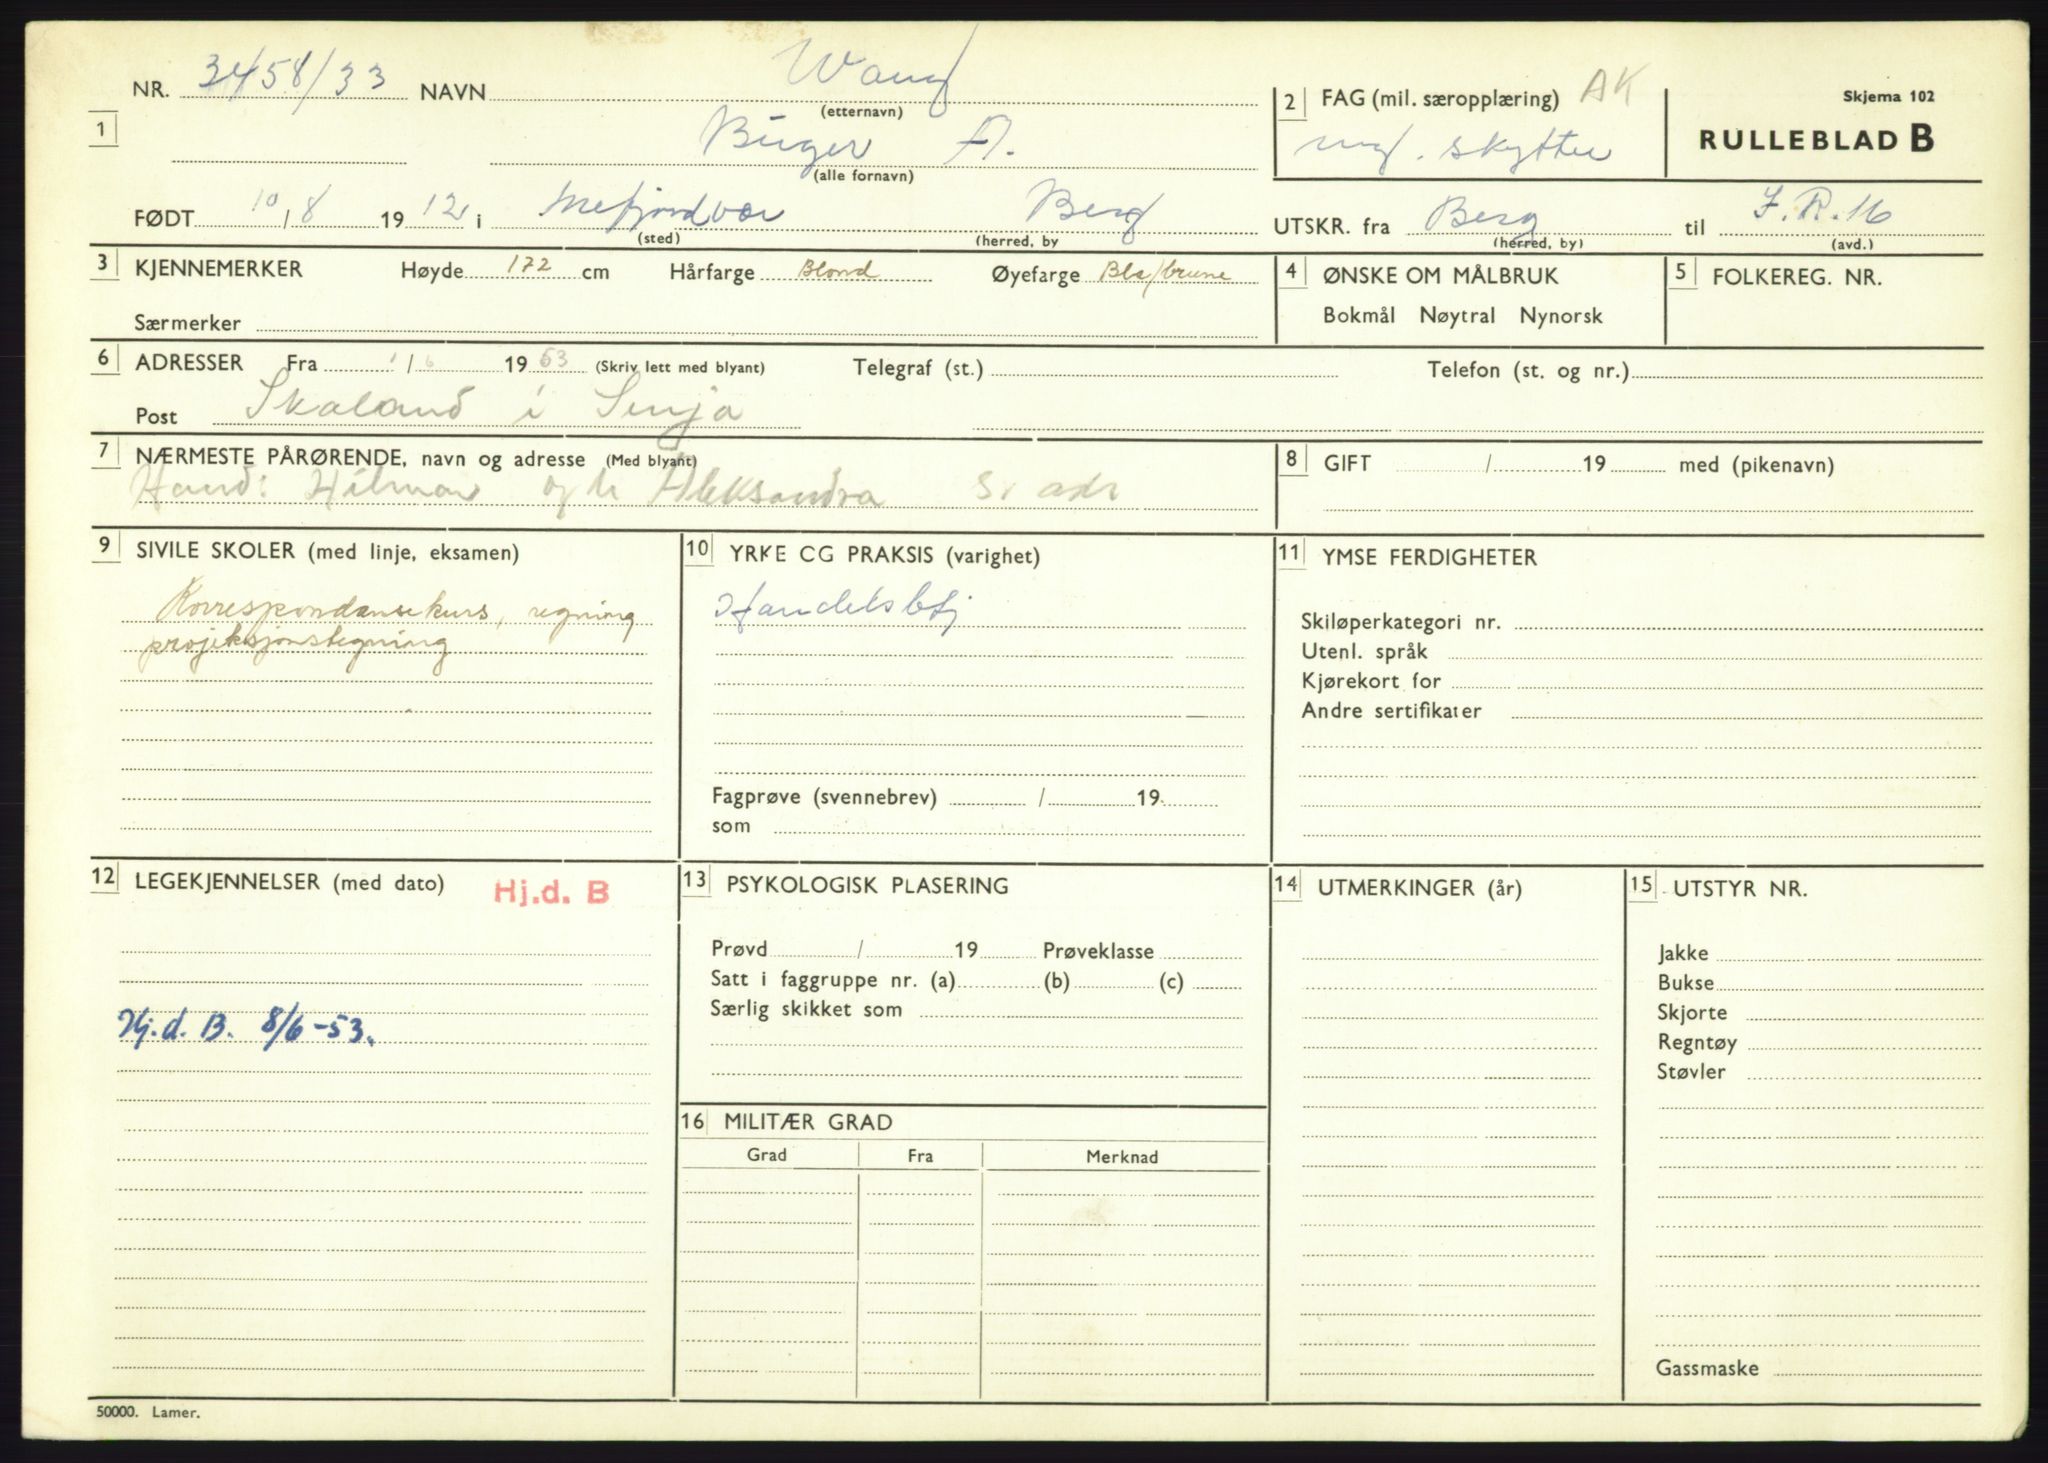 NR. 3458/33 NAVN Wang
(etternavn)
1
Birger A.
(alle fornavn)
2 FAG (mil. særopplæring) AK
mg. skytter
Skjema 102
RULLEBLAD B
FØDT 10/8 1912 i Mefjordvær Berg
(sted) (herred, by
UTSKR. fra Berg til I.R.16
(herred, by) (avd.)
3 KJENNEMERKER Høyde 172 cm Hårfarge Blond Øyefarge Blå/brune
Særmerker
4 ØNSKE OM MÅLBRUK
Bokmål Nøytral Nynorsk
5 FOLKEREG. NR.
6 ADRESSER Fra 1/6 1953 (Skriv lett med blyant) Telegraf (st.) Telefon (st. og nr.)
Post Skaland i Senja
7 NÆRMESTE PÅRØRENDE, navn og adresse (Med blyant)
Hilmar og Aleksandra s. adr
8 GIFT / 19 med (pikenavn)
9 SIVILE SKOLER (med linje, eksamen)
Korrespondansekurs, regning
projeksjonstegning
10 YRKE CG PRAKSIS (varighet)
Handelsbtj
Fagprøve (svennebrev) / 19
som
11 YMSE FERDIGHETER
Skiløperkategori nr.
Utenl. språk
Kjørekort for
Andre sertifikater
12 LEGEKJENNELSER (med dato) Hj.d. B
Hj.d. B. 8/6-53.
13 PSYKOLOGISK PLASERING
Prøvd / 19 Prøveklasse
Satt i faggruppe nr. (a) (b) (c)
Særlig skikket som
14 UTMERKINGER (år)
15 UTSTYR NR.
Jakke
Bukse
Skjorte
Regntøy
Støvler
Gassmaske
16 MILITÆR GRAD
Grad Fra Merknad
50000. Lamer.